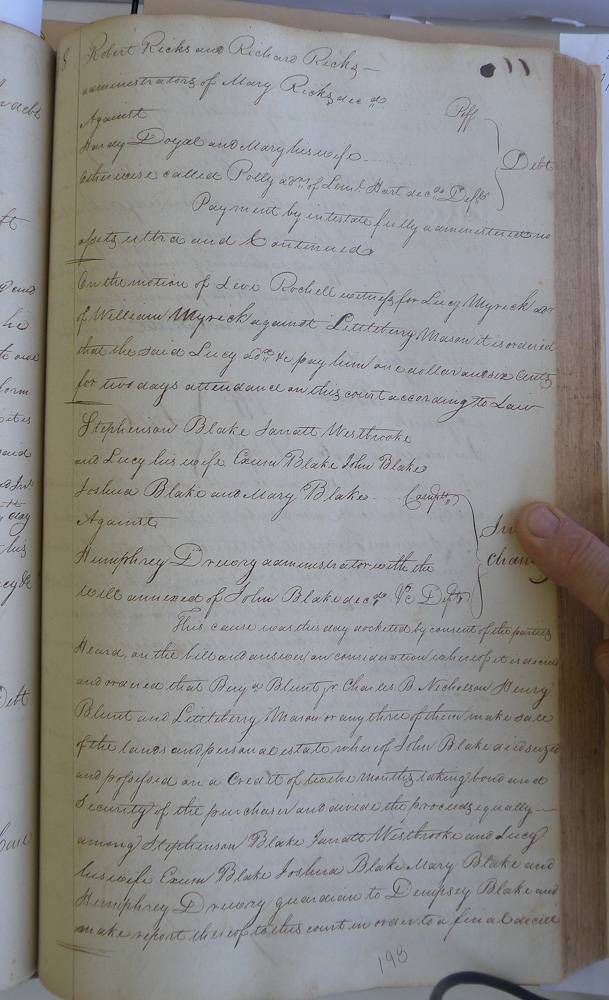 8 Robert Ricks and Richard Ricks
administrators of Mary Ricks dec.d
Against
Plff
Hardy Doyal and Mary his wife
Debt
otherwise called Polly adm.rs of Lem.l Hart dec.d Defts
Payment by intestate fully administered no
assets ultra and Continued
On the motion of Levi Rochell witness for Lucy Myrick
of William Myrick against Littleberry Mason it is ordered
that the said Lucy &c pay him one dollar and six Cents
for two days attendance on this court according to Law
Stephenson Blake Jarratt Westbrooke
and Lucy his wife Exum Blake John Blake
Joshua Blake and Mary Blake Complts
Against
In
Chan
Humphrey Drewry administrator with the
will annexed of John Blake dec.d &c Defts
This cause was this day docketed by consent of the parties
Heard on the bill and answer on consideration whereof it is decreed
and ordered that Benj.n Blunt jr Charles B. Nicholson Henry
Blunt and Littleberry Mason or any three of them make sale
of the lands and personal estate whereof John Blake died seized
and possessed on a Credit of twelve months taking bond and
Security of the purchaser and divide the proceeds equally
among Stephenson Blake Jarratt Westbrooke and Lucy
his wife Exum Blake Joshua Blake Mary Blake and
Humphrey Drewry guardian to Dempsey Blake and
make report thereof to this court in order to a final decree
198